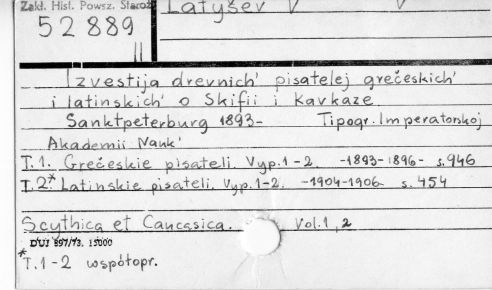 Zakł. Hist. Powsz. Staroż
Latyšev V V
52889
II
Izvestija drevnich' pisatelej grečeskich'
i latinskich' o Skifii i kavkaze
Sanktpeterburg 1893- Tipogr. Imperatorskoj
Akademii Nauk'
T.1. Grečeskie pisateli. Vyp.1-2. -1893-1896- s.946
T.2* Latinskie pisateli. Vyp.1-2. -1904-1906- s.454
Scythica et Caucasica. Vol.1,2
DUJ 897/73. 15000
*T.1-2 współopr.